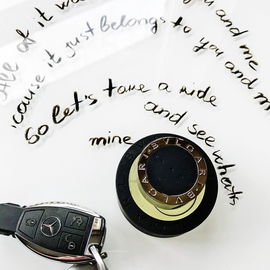 All of it was you and me
'cause it just belongs to you and m
So let's take a ride
and see what's
mine
BVLGARI · BVLGARI